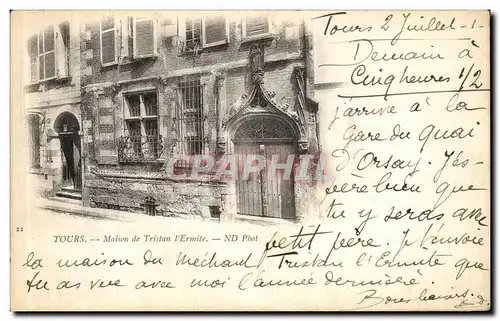 Tours 2 Juillet - 1-
Demain à
Cinq heures 1/2
j'arrive à la
Gare du quai
d'Orsay. J'es-
père bien que
tu y seras avec
petit père. J'envoie
la maison du Méchant Tristan l'Ermite que
tu as vue avec moi l'année dernière.
Bons baisers.
11
TOURS. — Maison de Tristan l'Ermite. — ND Phot
CARTHAPOSTALE